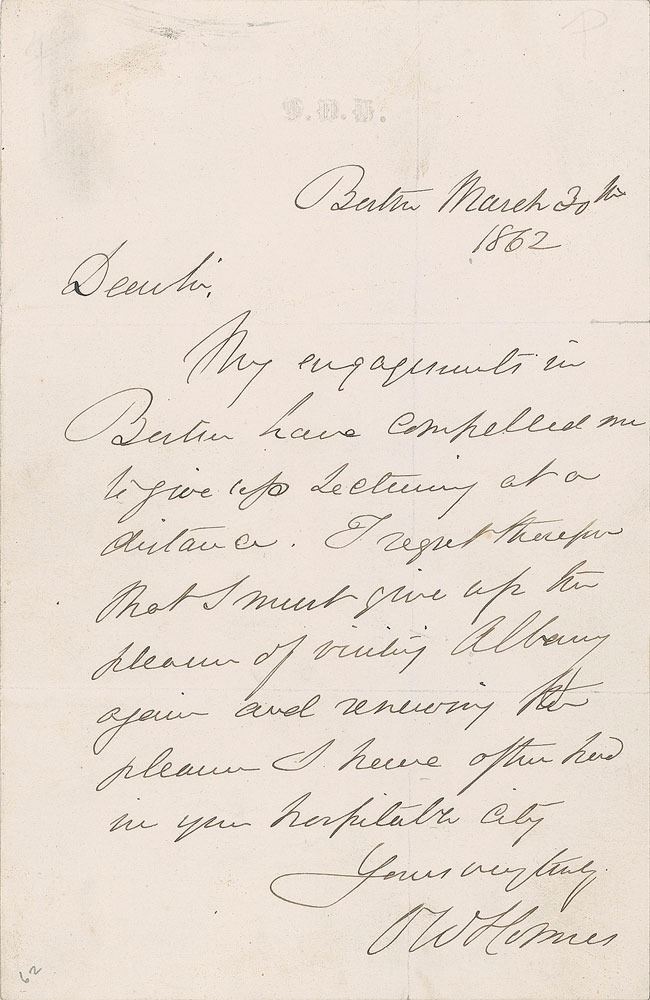 Boston March 30th
1862
Dear Sir,
My engagements in
Boston have compelled me
to give up Lecturing at a
distance. I regret therefore
that I must give up the
pleasure of visiting Albany
again and renewing the
pleasure I have often had
in your hospitable city
Yours very truly
O W Holmes
62